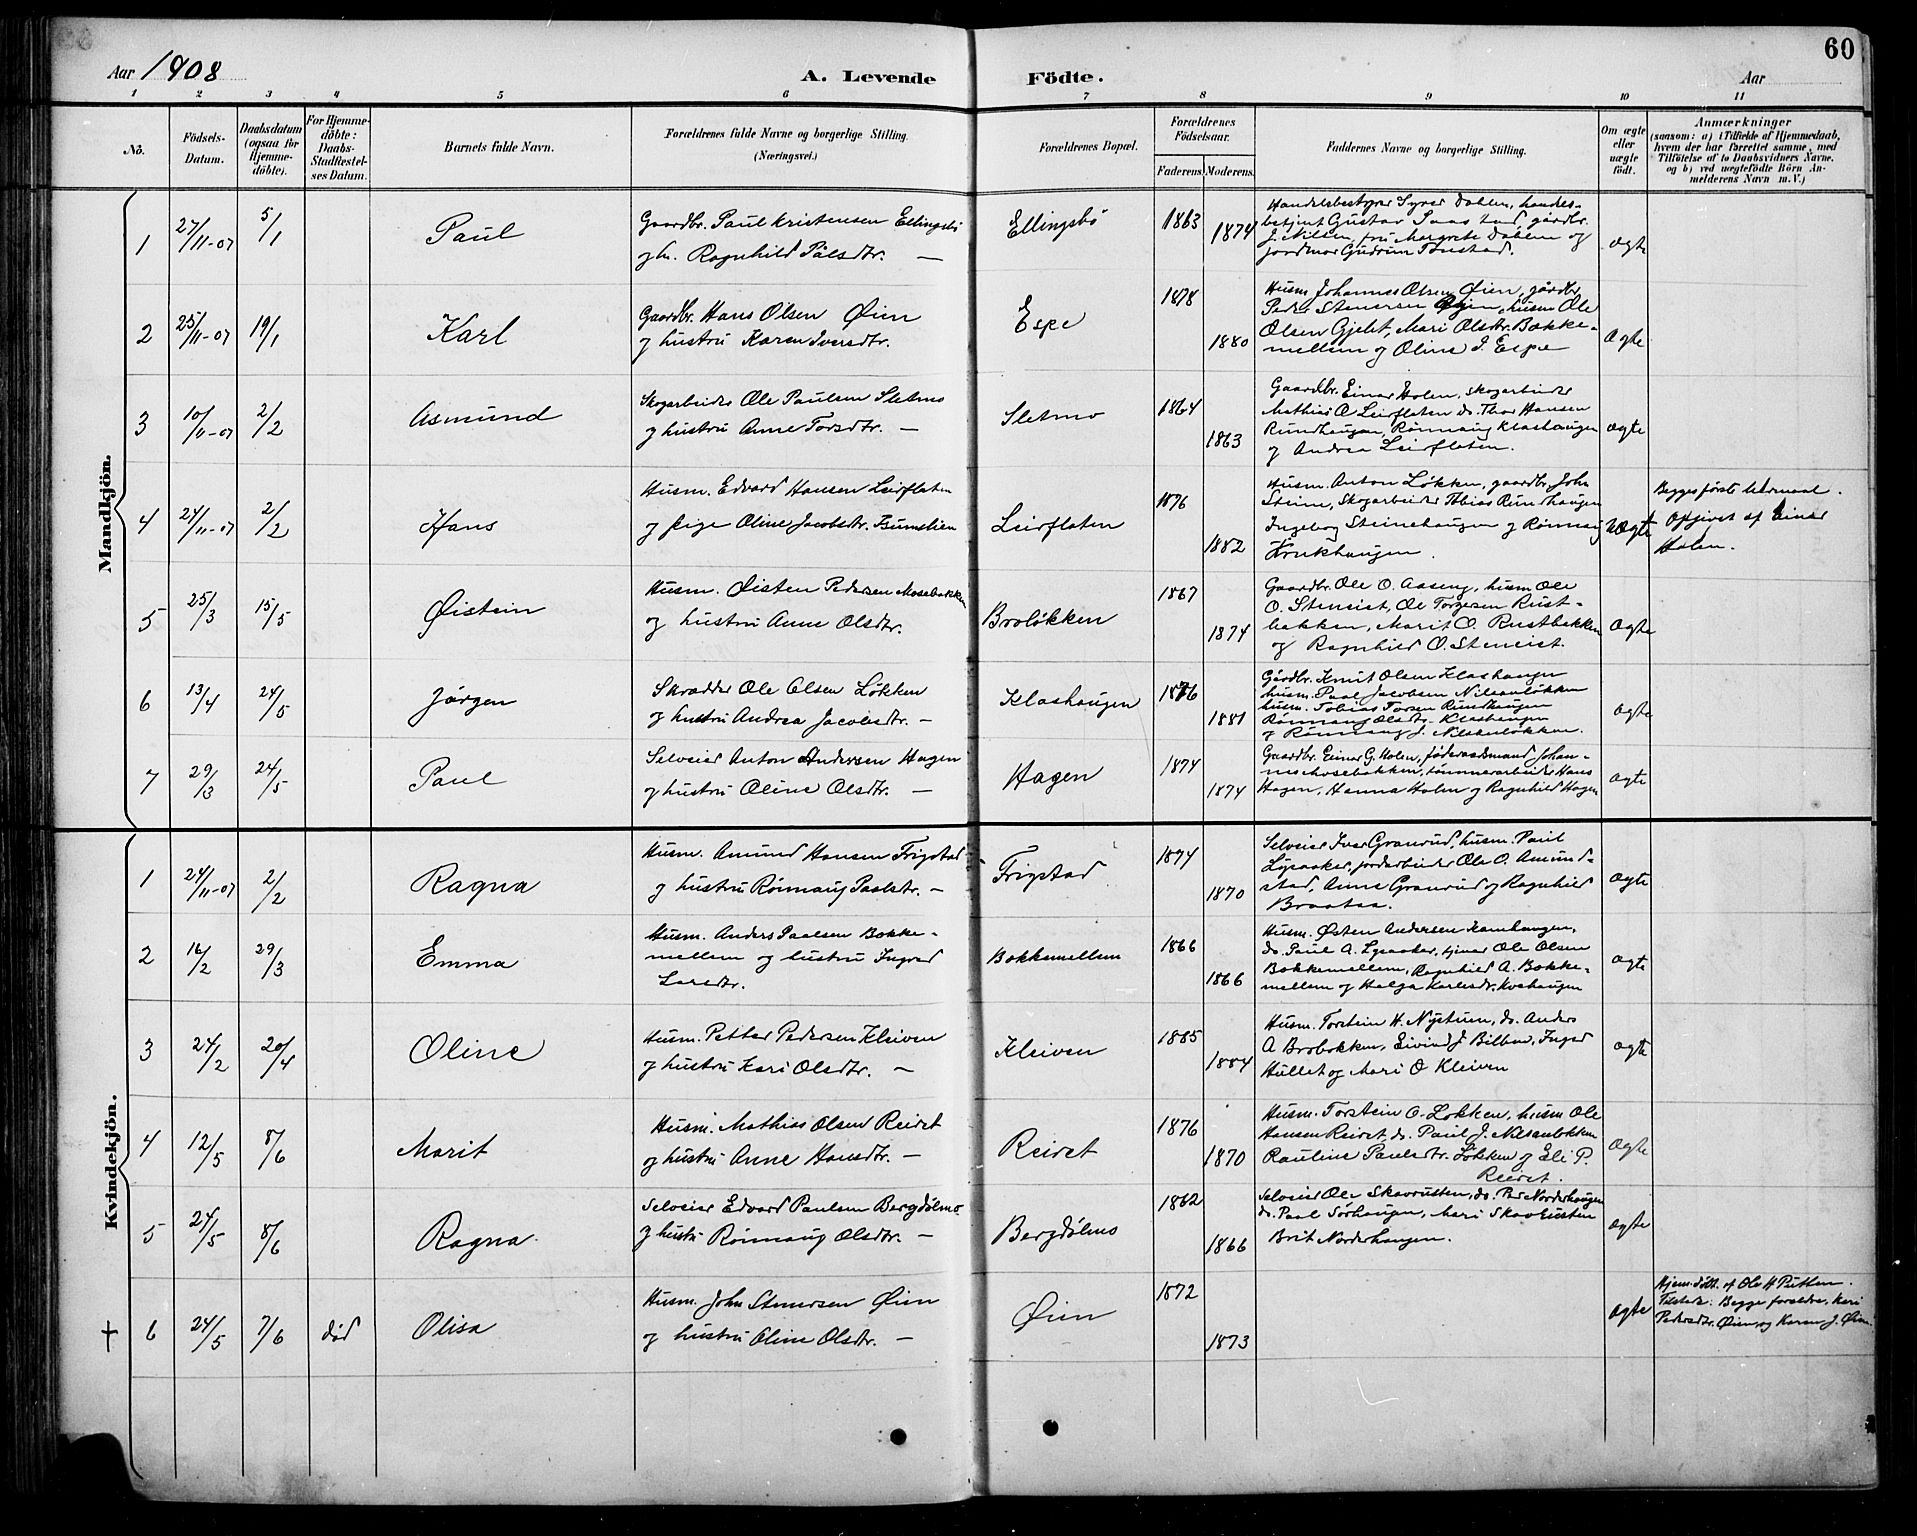 60
Aar 1908
A. Levende Födte.
Aar
1 2 3 4 5 6 7 8 9 10 11
No.
Födsels-
Datum.
Daabsdatum
(ogsaa for
Hjemme-
döbte).
For Hjemme-
döbte:
Daabs-
Stadfæstel-
ses Datum.
Barnets fulde Navn.
Forældrenes fulde Navne og borgerlige Stilling.
(Næringsvei.)
Forældrenes Bopæl.
Forældrenes
Födselsaar.
Faderens. Moderens.
Faddernes Navne og borgerlige Stilling.
Om ægte
eller
uægte
födt.
Anmærkninger
(saasom: a) i Tilfælde af Hjemmedaab,
hvem der har forrettet samme, med
Tilföielse af to Daabsvidners Navne.
og b) ved uægtefödte Börn An-
melderens Navn m. V.)
Mandkjön.
1 27/11-07 5/1 Paul
Gaardbr. Paul Kristensen Ellingsbö
og h. Ragnhild Pålsdtr. —
Ellingsbö 1863 1874
Handelsbestyrer Syver Dahlen, handels-
betjent Gustav Saastad, gårdbr.
J. Nilsen, fru Margrete Dahlen og
jordmor Gudrun Tonstad.
ægte
2 25/11-07 19/1 Karl
Gaardbr. Hans Olsen Øien
og hustru Karen Iversdtr.
Espe 1878 1880
Husm. Johannes Olsen Øien, gårdbr.
Peder Stenersen Øien, husm Ole
Olsen Gjelet, Mari Olsdtr. Bække-
mellem og Oline J. Espe
Ægte
3 10/11-07 2/2 Asmund
Skogarbeider Ole Paulsen Sletmo
og hustru Anne Torsdtr. —
Sletmo 1864 1863
Gaardbr. Einar Holen, skogarbeider
Mathias O Leirflaten do. Thor Hansen
Rundhaugen, Rønnaug Klashaugen
og Andrea Leirflaten.
ægte
4 24/11-07 2/2 Hans
Husm. Edvard Hansen Leirflaten
og pige Oline Jacobsdtr. Bunslien
Leirflaten 1876 1882
Husm. Anton Løkken, gaardbr. John
Steine, Skogarbeider Tobias Rundhaugen
Ingeborg Steinehaugen og Rønnaug
Krukhaugen.
Uægte
Begges förste Leermaal.
Opgivet af Einar
Holen.
5 25/3 15/5 Øistein
Husm. Øisten Pedersen Mosebakken
og hustru Anne Olsdtr.
Broløkken 1867 1874
Gaardbr. Ole O. Aaseng, husm Ole
O. Steneiet, Ole Torgersen Rust-
bakken, Marit O. Rustbakken
og Ragnhild O. Steneiet.
Ægte
6 13/4 24/5 Jørgen
Skrædder Ole Olsen Løkken
og hustru Andrea Jacobsdtr. —
Klashaugen 1876 1881
Gårdbr. Knut Olsen Klashaugen
husm. Paul Jacobsen Nilsenløkken
husm. Tobias Torsen Rundhaugen
Rønnaug Olsdtr. Klashaugen
og Rønnaug J. Nilsenløkken.
ægte
7 29/3 24/5 Paul
Selveier Anton Andersen Hagen
og hustru Oline Olsdtr. —
Hagen 1874 1874
Gaardbr. Einar G. Holen, föderaadsmand Johan-
nes Mosebakken, tømmerarbeider Hans
Hagen, Hanna Holen og Ragnhild Hagen
ægte
Kvindekjön.
1 24/11-07 2/2 Ragna
Husm. Amund Hansen Frigstad
og hustru Rønnaug Paalsdtr. —
Frigstad 1874 1870
Selveier Iver Granrud, husm. Paul
Lysaaker, jordarbeider Ole O. Amund-
stad, Anne Granrud og Ragnhild
Braataa.
ægte
2 16/2 29/3 Emma
Husm. Anders Paulsen Bække-
mellem og hustru Ingrid
Larsdtr.
Bækkemellem 1866 1866
Husm. Østen Andersen Kamhaugen,
do. Paul A. Lysaaker, tjener Ole Olsen
Bækkemellem, Ragnhild A. Bække-
mellem og Helga Karlsdtr. Kvehaugen
ægte
3 24/2 20/4 Oline
Husm. Petter Pedersen Kleiven
og hustru Kari Olsdtr. —
Kleiven 1885 1884
Husm. Torstein H. Nystuen, do. Anders
A Brobakken, Eivind J Bilben, Inger
Hullet og Mari O Kleiven
ægte
4 12/5 8/6 Marit
Husm. Mathias Olsen Reiret
og hustru Anne Hansdtr. —
Reiret 1876 1870
Husm. Torstein O. Løkken, husm Ole
Hansen Reiret, do. Paul J. Nilsenløkken
Pauline Paulsdtr. Løkken og Eli P.
Reiret.
ægte
5 24/5 8/6 Ragna
Selveier Edvard Paulsen Bergdølmo
og hustru Rønnaug Olsdtr. —
Bergdølmo 1862 1866
Selveier Ole Skavrusten, do. Per Norderhaugen
do. Paul Sørhaugen, Mari Skavrusten
Brit Norderhaugen.
ægte
† 6 24/5 7/6 død Olisa
Husm. John Stenersen Øien
og hustru Oline Olsdtr. —
Øien 1872 1873
ægte
Hjem.døbt. af Ole H Putten.
Tilstede: Begge forældre, Kari
Pedersdtr. Øien, og Karen J. Øien.